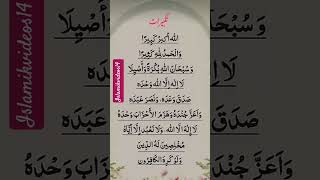 تکبیرات
اَللهُ اَكْبَرُ كَبِيْرًا
وَالْحَمْدُ لِلّٰهِ كَثِيْرًا
وَسُبْحَانَ اللهِ بُكْرَةً وَّاَصِيْلًا
لَا اِلٰهَ اِلَّا اللهُ وَحْدَهٗ
صَدَقَ وَعْدَهٗ، وَنَصَرَ عَبْدَهٗ
وَاَعَزَّ جُنْدَهٗ وَهَزَمَ الْاَحْزَابَ وَحْدَهٗ
لَا اِلٰهَ اِلَّا اللهُ، وَلَا نَعْبُدُ اِلَّا اِيَّاهُ
مُخْلِصِيْنَ لَهُ الدِّيْنَ
وَلَوْ كَرِهَ الْكَافِرُوْنَ
Islamikvideos14
وَسُبْحَانَ اللهِ بُكْرَةً وَّاَصِيْلًا
لَا اِلٰهَ اِلَّا اللهُ
صَدَقَ
عَبْدَهٗ
وَاَعَزَّ جُنْدَ
وَحْدَهٗ